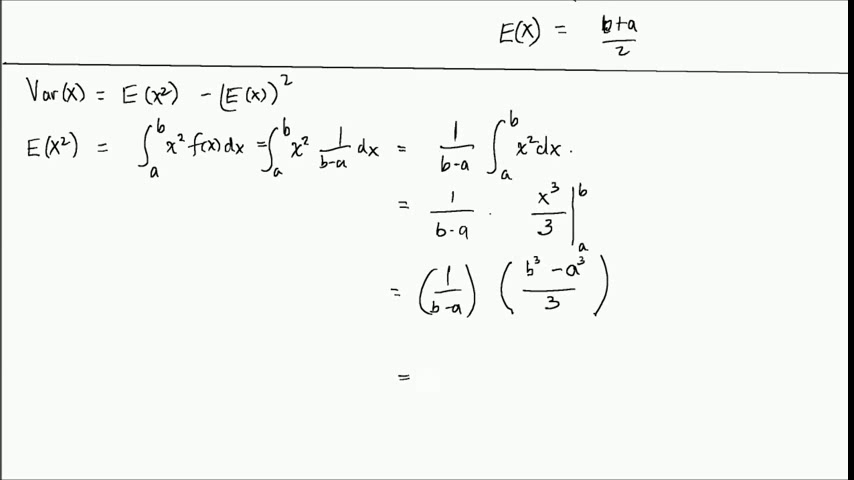 E(X) = b+a/2
Var(X) = E(X²) - (E(X))²
E(X²) = ∫ₐᵇ x² f(x) dx = ∫ₐᵇ x² 1/b-a dx = 1/b-a ∫ₐᵇ x² dx.
= 1/b-a · x³/3 |ₐᵇ
= (1/b-a) (b³-a³/3)
=